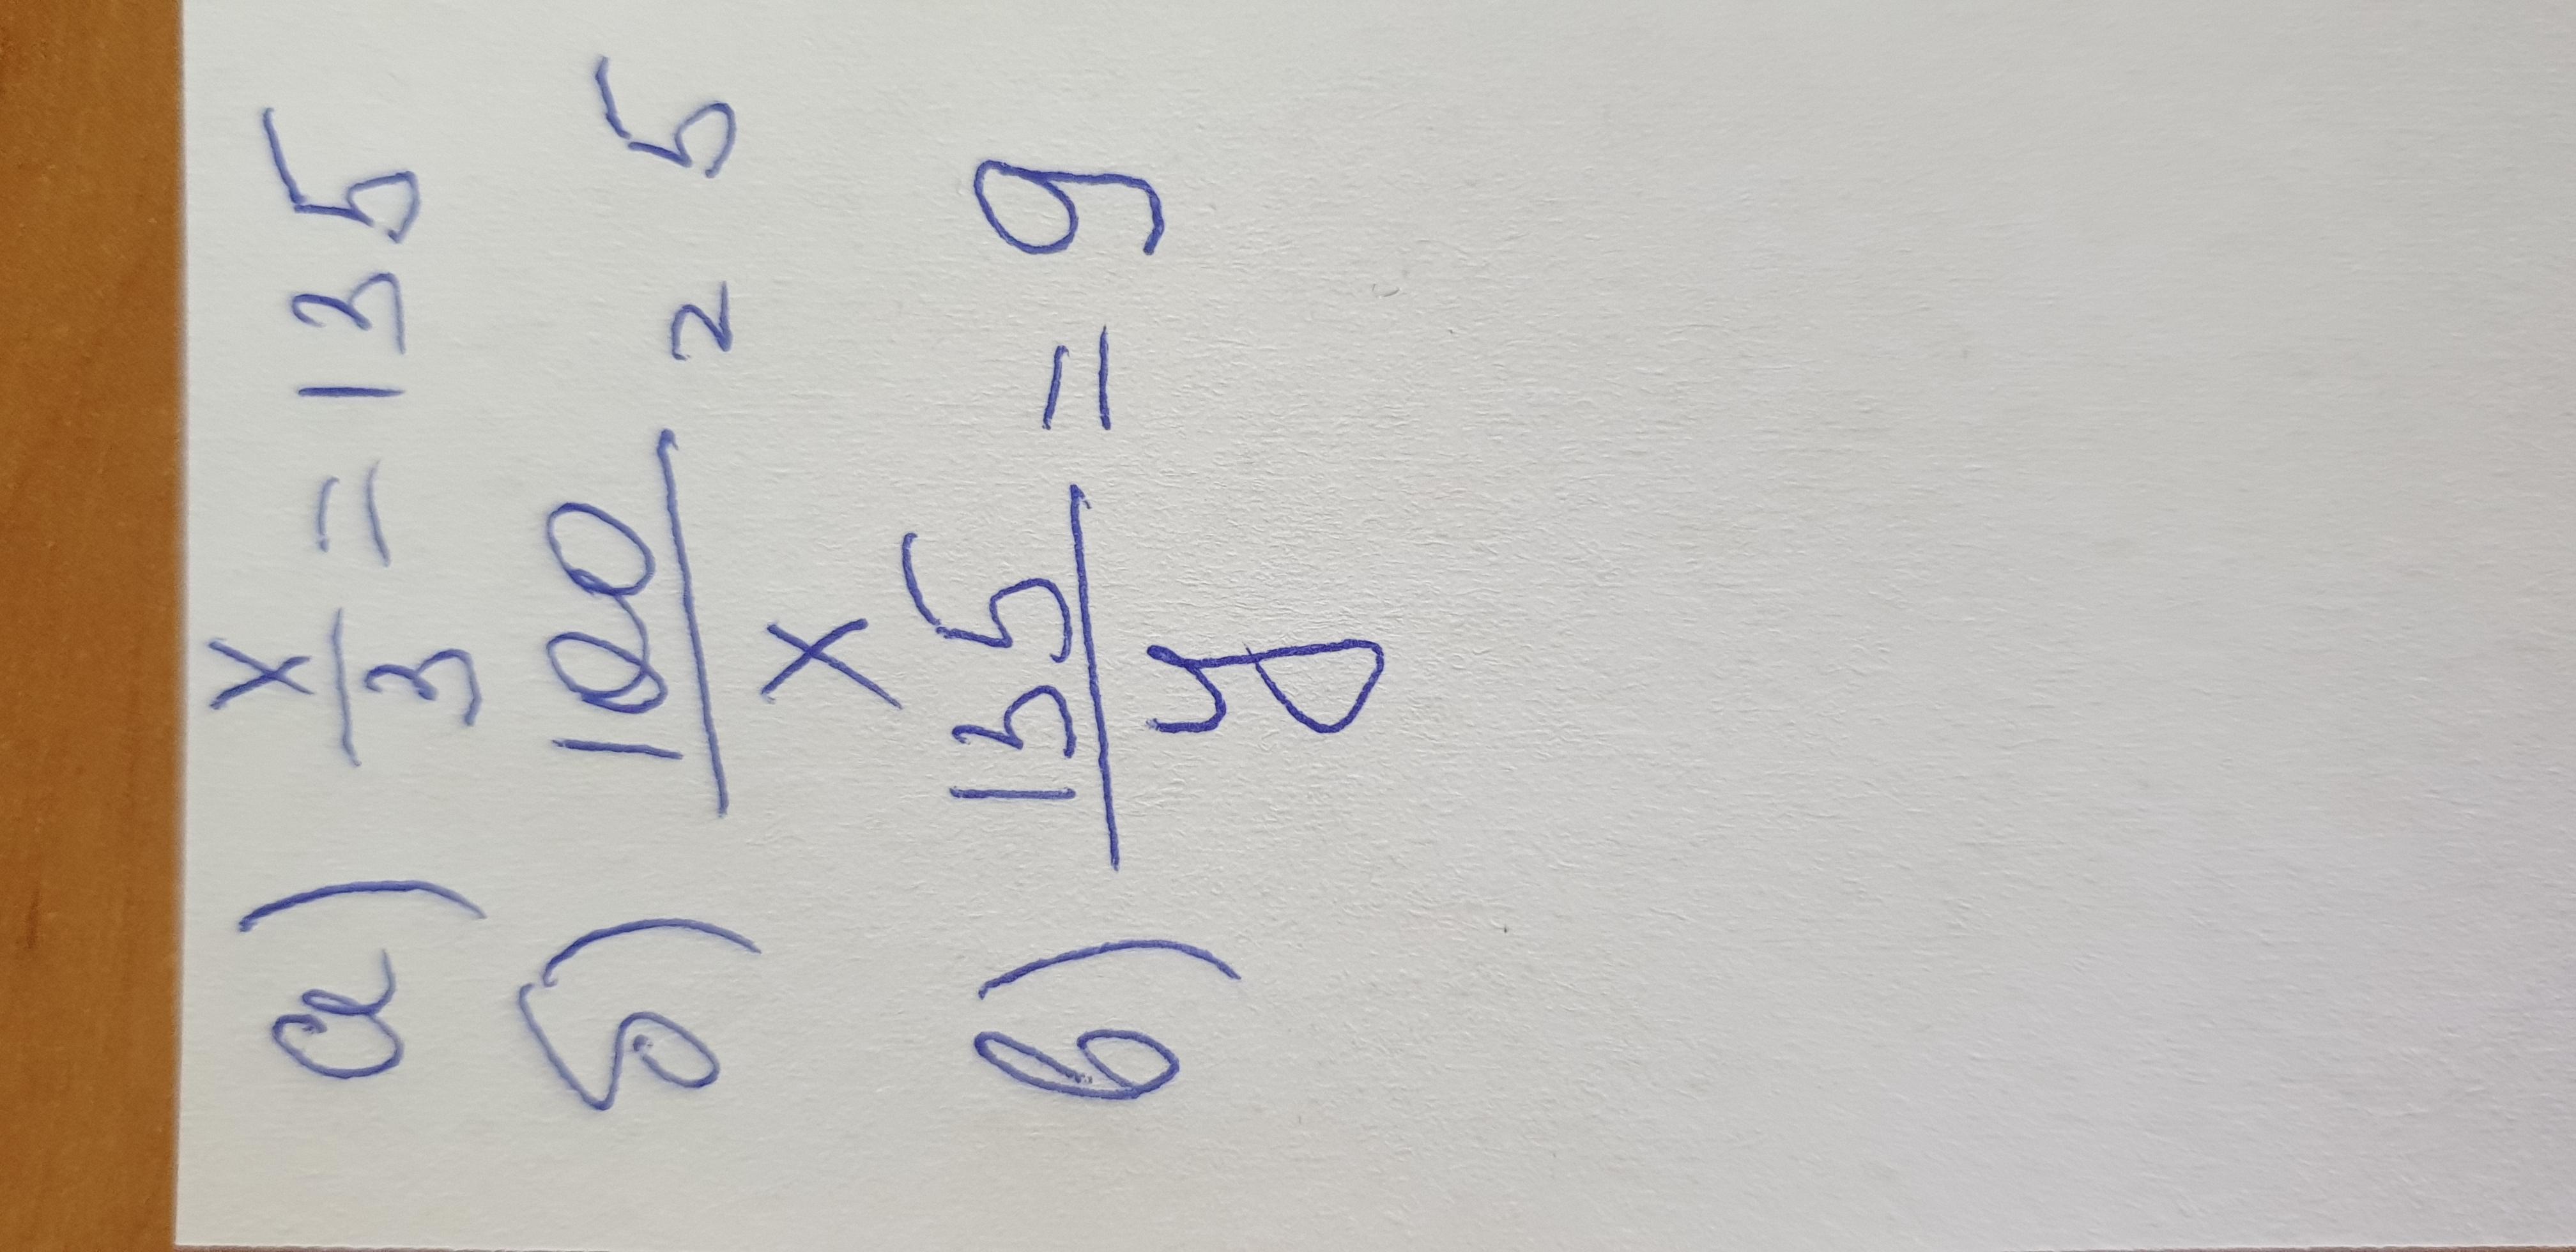 а) x/3 = 135
б) 100/x = 5
в) 135/y = 9